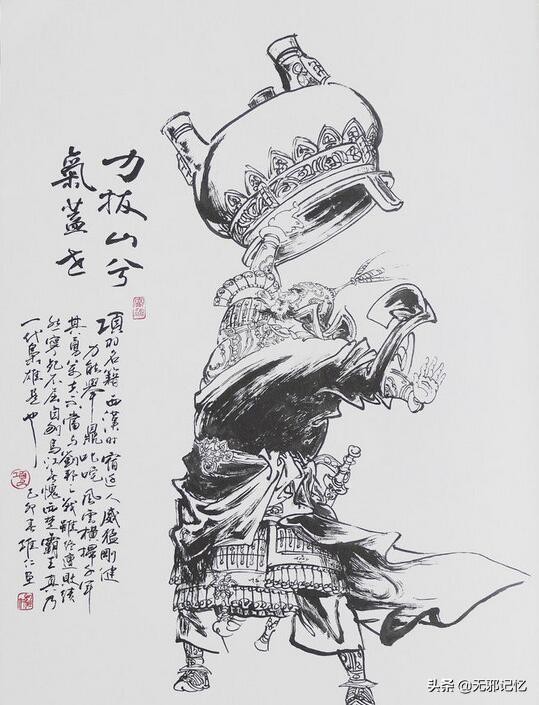 力拔山兮
氣蓋世
項羽名籍西漢時宿迁人威猛剛健
力能舉鼎叱咤風雲橫掃千軍
其勇萬夫不當与劉邦之戰雖經連敗績
然寧死不屈自刎烏江無愧西楚霸王真乃
一代梟雄是也
己卯春雄仁
头条 @无邪记忆